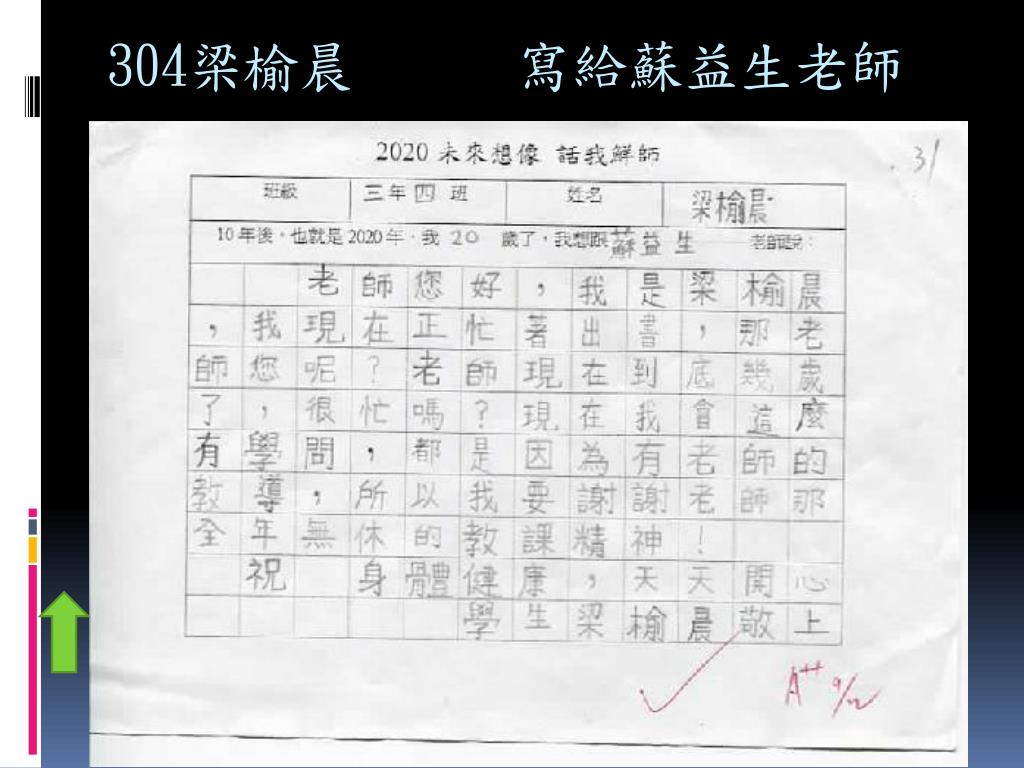 304梁榆晨 寫給蘇益生老師
2020 未來想像 話我鮮師
31
班級 三年四班 姓名 梁榆晨
10年後,也就是2020年,我20歲了,我想跟蘇益生老師說:
老師您好,我是梁榆晨
,我現在正忙著出書,那老
師您呢?老師現在到底幾歲
了,很忙嗎?現在我會這麼
有學問,都是因為有老師的
教導,所以我要謝謝老師那
全年無休的教課精神!
祝 身體健康,天天開心
學生梁榆晨敬上
A++ 9/12